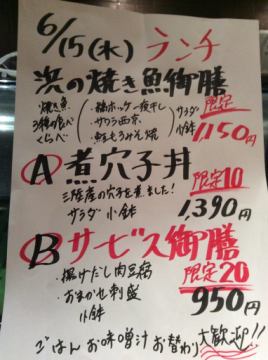 6/15(水) ランチ
浜の焼き魚御膳
焼き魚
3種の食べ
くらべ
・縞ホッケ一夜干し
・サワラ西京
サラダ
小鉢
限定
1,150円
A 煮穴子丼
三陸産の穴子を煮ました!
サラダ 小鉢
限定10
1,390円
B サービス御膳
・揚げだし肉豆腐
・おまかせ刺盛
小鉢
限定20
950円
ごはん お味噌汁 お替わり 大歓迎!!